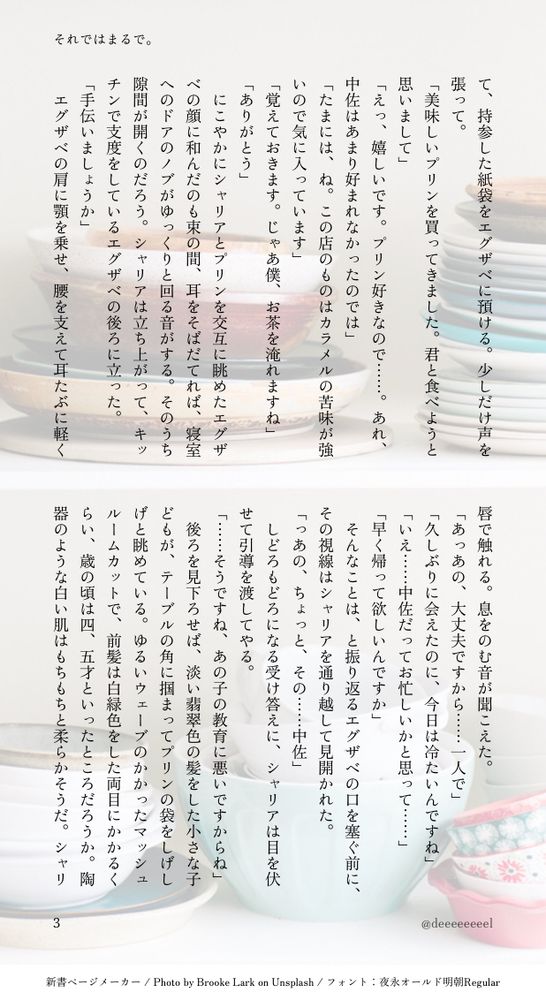 それではまるで。
て、持参した紙袋をエグザベに預ける。少しだけ声を
張って。
「美味しいプリンを買ってきました。君と食べようと
思いまして」
「えっ、嬉しいです。プリン好きなので……。あれ、
中佐はあまり好まれなかったのでは」
「たまには、ね。この店のものはカラメルの苦味が強
いので気に入っています」
「覚えておきます。じゃあ僕、お茶を淹れますね」
「ありがとう」
にこやかにシャリアとプリンを交互に眺めたエグザ
ベの顔に和んだのも束の間、耳をそばだてれば、寝室
へのドアのノブがゆっくりと回る音がする。そのうち
隙間が開くのだろう。シャリアは立ち上がって、キッ
チンで支度をしているエグザベの後ろに立った。
「手伝いましょうか」
エグザベの肩に顎を乗せ、腰を支えて耳たぶに軽く
唇で触れる。息をのむ音が聞こえた。
「あっあの、大丈夫ですから……一人で」
「久しぶりに会えたのに、今日は冷たいんですね」
「いえ……中佐だってお忙しいかと思って……」
「早く帰って欲しいんですか」
そんなことは、と振り返るエグザベの口を塞ぐ前に、
その視線はシャリアを通り越して見開かれた。
「っあの、ちょっと、その……中佐」
しどろもどろになる受け答えに、シャリアは目を伏
せて引導を渡してやる。
「……そうですね、あの子の教育に悪いですからね」
後ろを見下ろせば、淡い翡翠色の髪をした小さな子
どもが、テーブルの角に掴まってプリンの袋をしげし
げと眺めている。ゆるいウェーブのかかったマッシュ
ルームカットで、前髪は白緑色をした両目にかかるく
らい、歳の頃は四、五才といったところだろうか。陶
器のような白い肌はもちもちと柔らかそうだ。シャリ
3
@deeeeeeeel
新書ページメーカー / Photo by Brooke Lark on Unsplash / フォント：夜永オールド明朝Regular